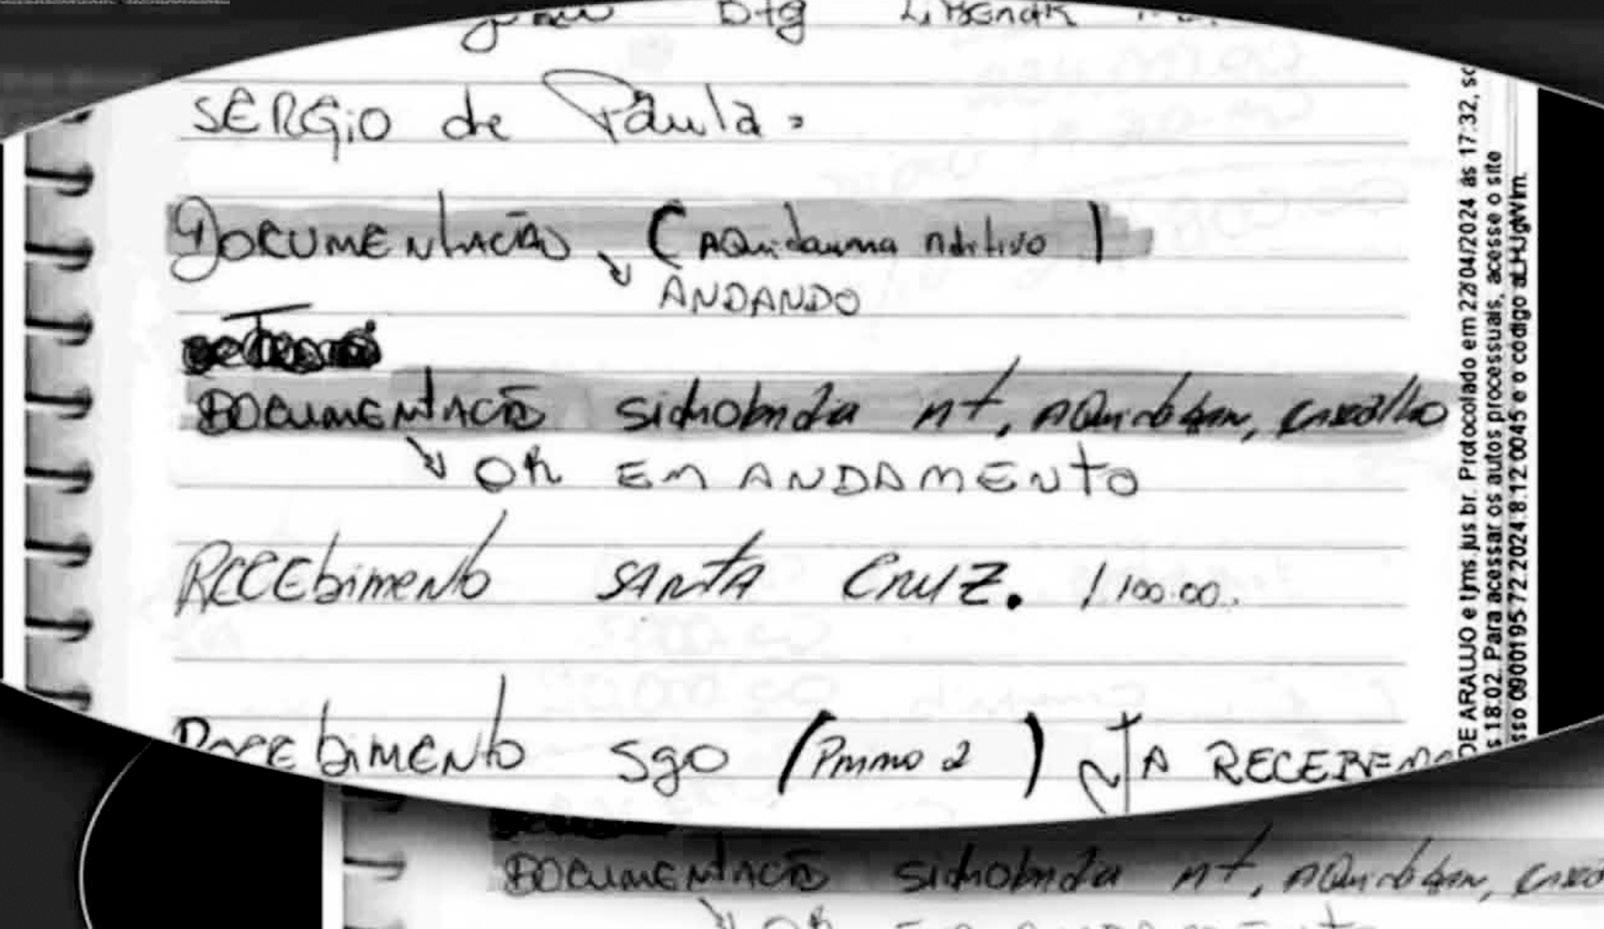 Btg
SERGIO de Paula.
DOCUMENtACÃO (AQuidauma Aditivo)
ANDANDO
DOCUMENtACÃO sidrolândia nt, AQuidaban, cascalho
OK EM ANDAMENtO
RECEbimENto SANtA CruZ. 1100.00.
RECEbiMENto Sgo (Primo 2) JÁ RECEBEMO
DOCUMENtACÃO sidrolândia nt, AQuidaban, casc
OK EM ANDAMENtO
DE ARAUJO e tjms jus br. Protocolado em 22/04/2024 às 17:32, so
s 18:02. Para acessar os autos processuais, acesse o site
sso 0900195-72.2024.8.12.0045 e o código